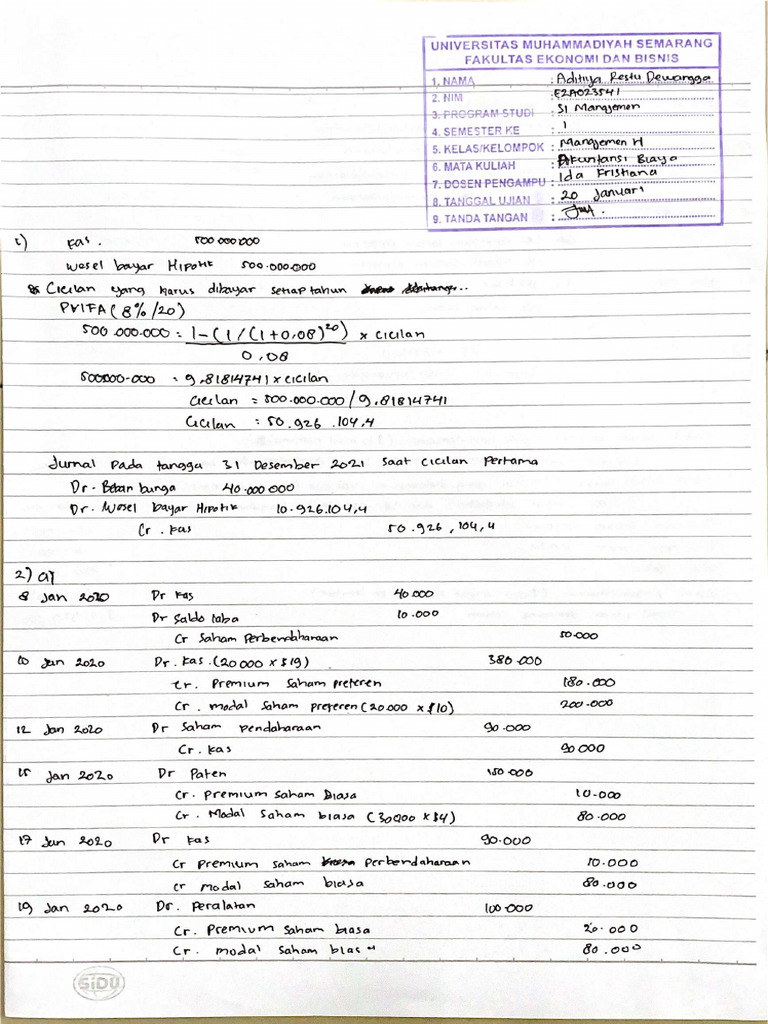 UNIVERSITAS MUHAMMADIYAH SEMARANG
FAKULTAS EKONOMI DAN BISNIS
1. NAMA : Aditiya Restu Dewangga
2. NIM : E2A023541
3. PROGRAM STUDI : S1 Manajemen
4. SEMESTER KE : 1
5. KELAS/KELOMPOK : Manajemen H
6. MATA KULIAH : Akuntansi Biaya
7. DOSEN PENGAMPU : Ida Kristiana
8. TANGGAL UJIAN : 20 Januari
9. TANDA TANGAN :
1) Kas. 500.000.000
Wesel bayar Hipotik 500.000.000
Cicilan yang harus dibayar setiap tahun
PVIFA (8%/20)
500.000.000 = 1-(1/(1+0,08)^20) x cicilan
0,08
500.000.000 = 9,81814741 x cicilan
Cicilan = 500.000.000 / 9,81814741
Cicilan = 50.926.104,4
Jurnal Pada tangga 31 Desember 2021 saat cicilan pertama
Dr. Beban bunga 40.000.000
Dr. Wesel bayar Hipotik 10.926.104,4
Cr. Kas 50.926,104,4
2) a)
8 Jan 2020 Dr Kas 40.000
Dr Saldo laba 10.000
Cr Saham Perbendaharaan 50.000
10 Jan 2020 Dr. Kas (20.000 x $19) 380.000
Cr. Premium saham preferen 180.000
Cr. modal saham preferen (20.000 x $10) 200.000
12 Jan 2020 Dr Saham pendaharaan 90.000
Cr. Kas 90.000
15 Jan 2020 Dr Paten 150.000
Cr. premium saham Biasa 10.000
Cr. Modal saham biasa ( x $4) 80.000
17 Jan 2020 Dr Kas 90.000
Cr Premium saham perbendaharaan 10.000
Cr modal saham biasa 80.000
19 Jan 2020 Dr. Peralatan 100.000
Cr. Premium saham biasa 20.000
Cr. modal saham biasa 80.000
SiDU